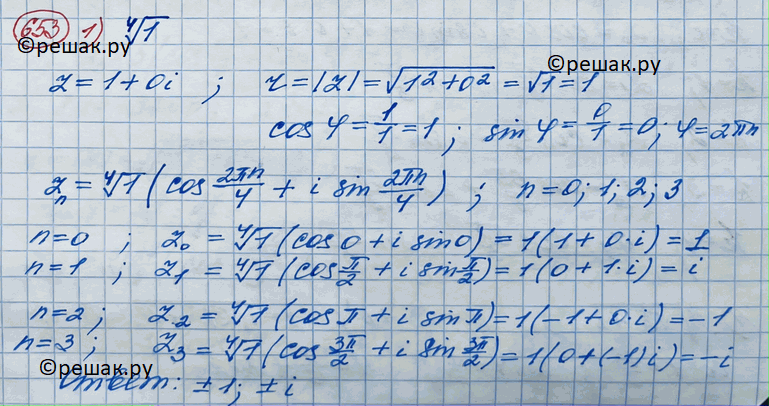 653 1) ⁴√1
©решак.ру
©решак.ру
z = 1 + 0i ; r = |z| = √(1² + 0²) = √1 = 1
cos φ = 1/1 = 1 ; sin φ = 0/1 = 0 ; φ = 2πn
zₙ = ⁴√1 (cos 2πn/4 + i sin 2πn/4) ; n = 0; 1; 2; 3
n = 0 ; z₀ = ⁴√1 (cos 0 + i sin 0) = 1(1 + 0·i) = 1
n = 1 ; z₁ = ⁴√1 (cos π/2 + i sin π/2) = 1(0 + 1·i) = i
n = 2 ; z₂ = ⁴√1 (cos π + i sin π) = 1(-1 + 0·i) = -1
n = 3 ; z₃ = ⁴√1 (cos 3π/2 + i sin 3π/2) = 1(0 + (-1)i) = -i
©решак.ру
Ответ: ±1; ±i